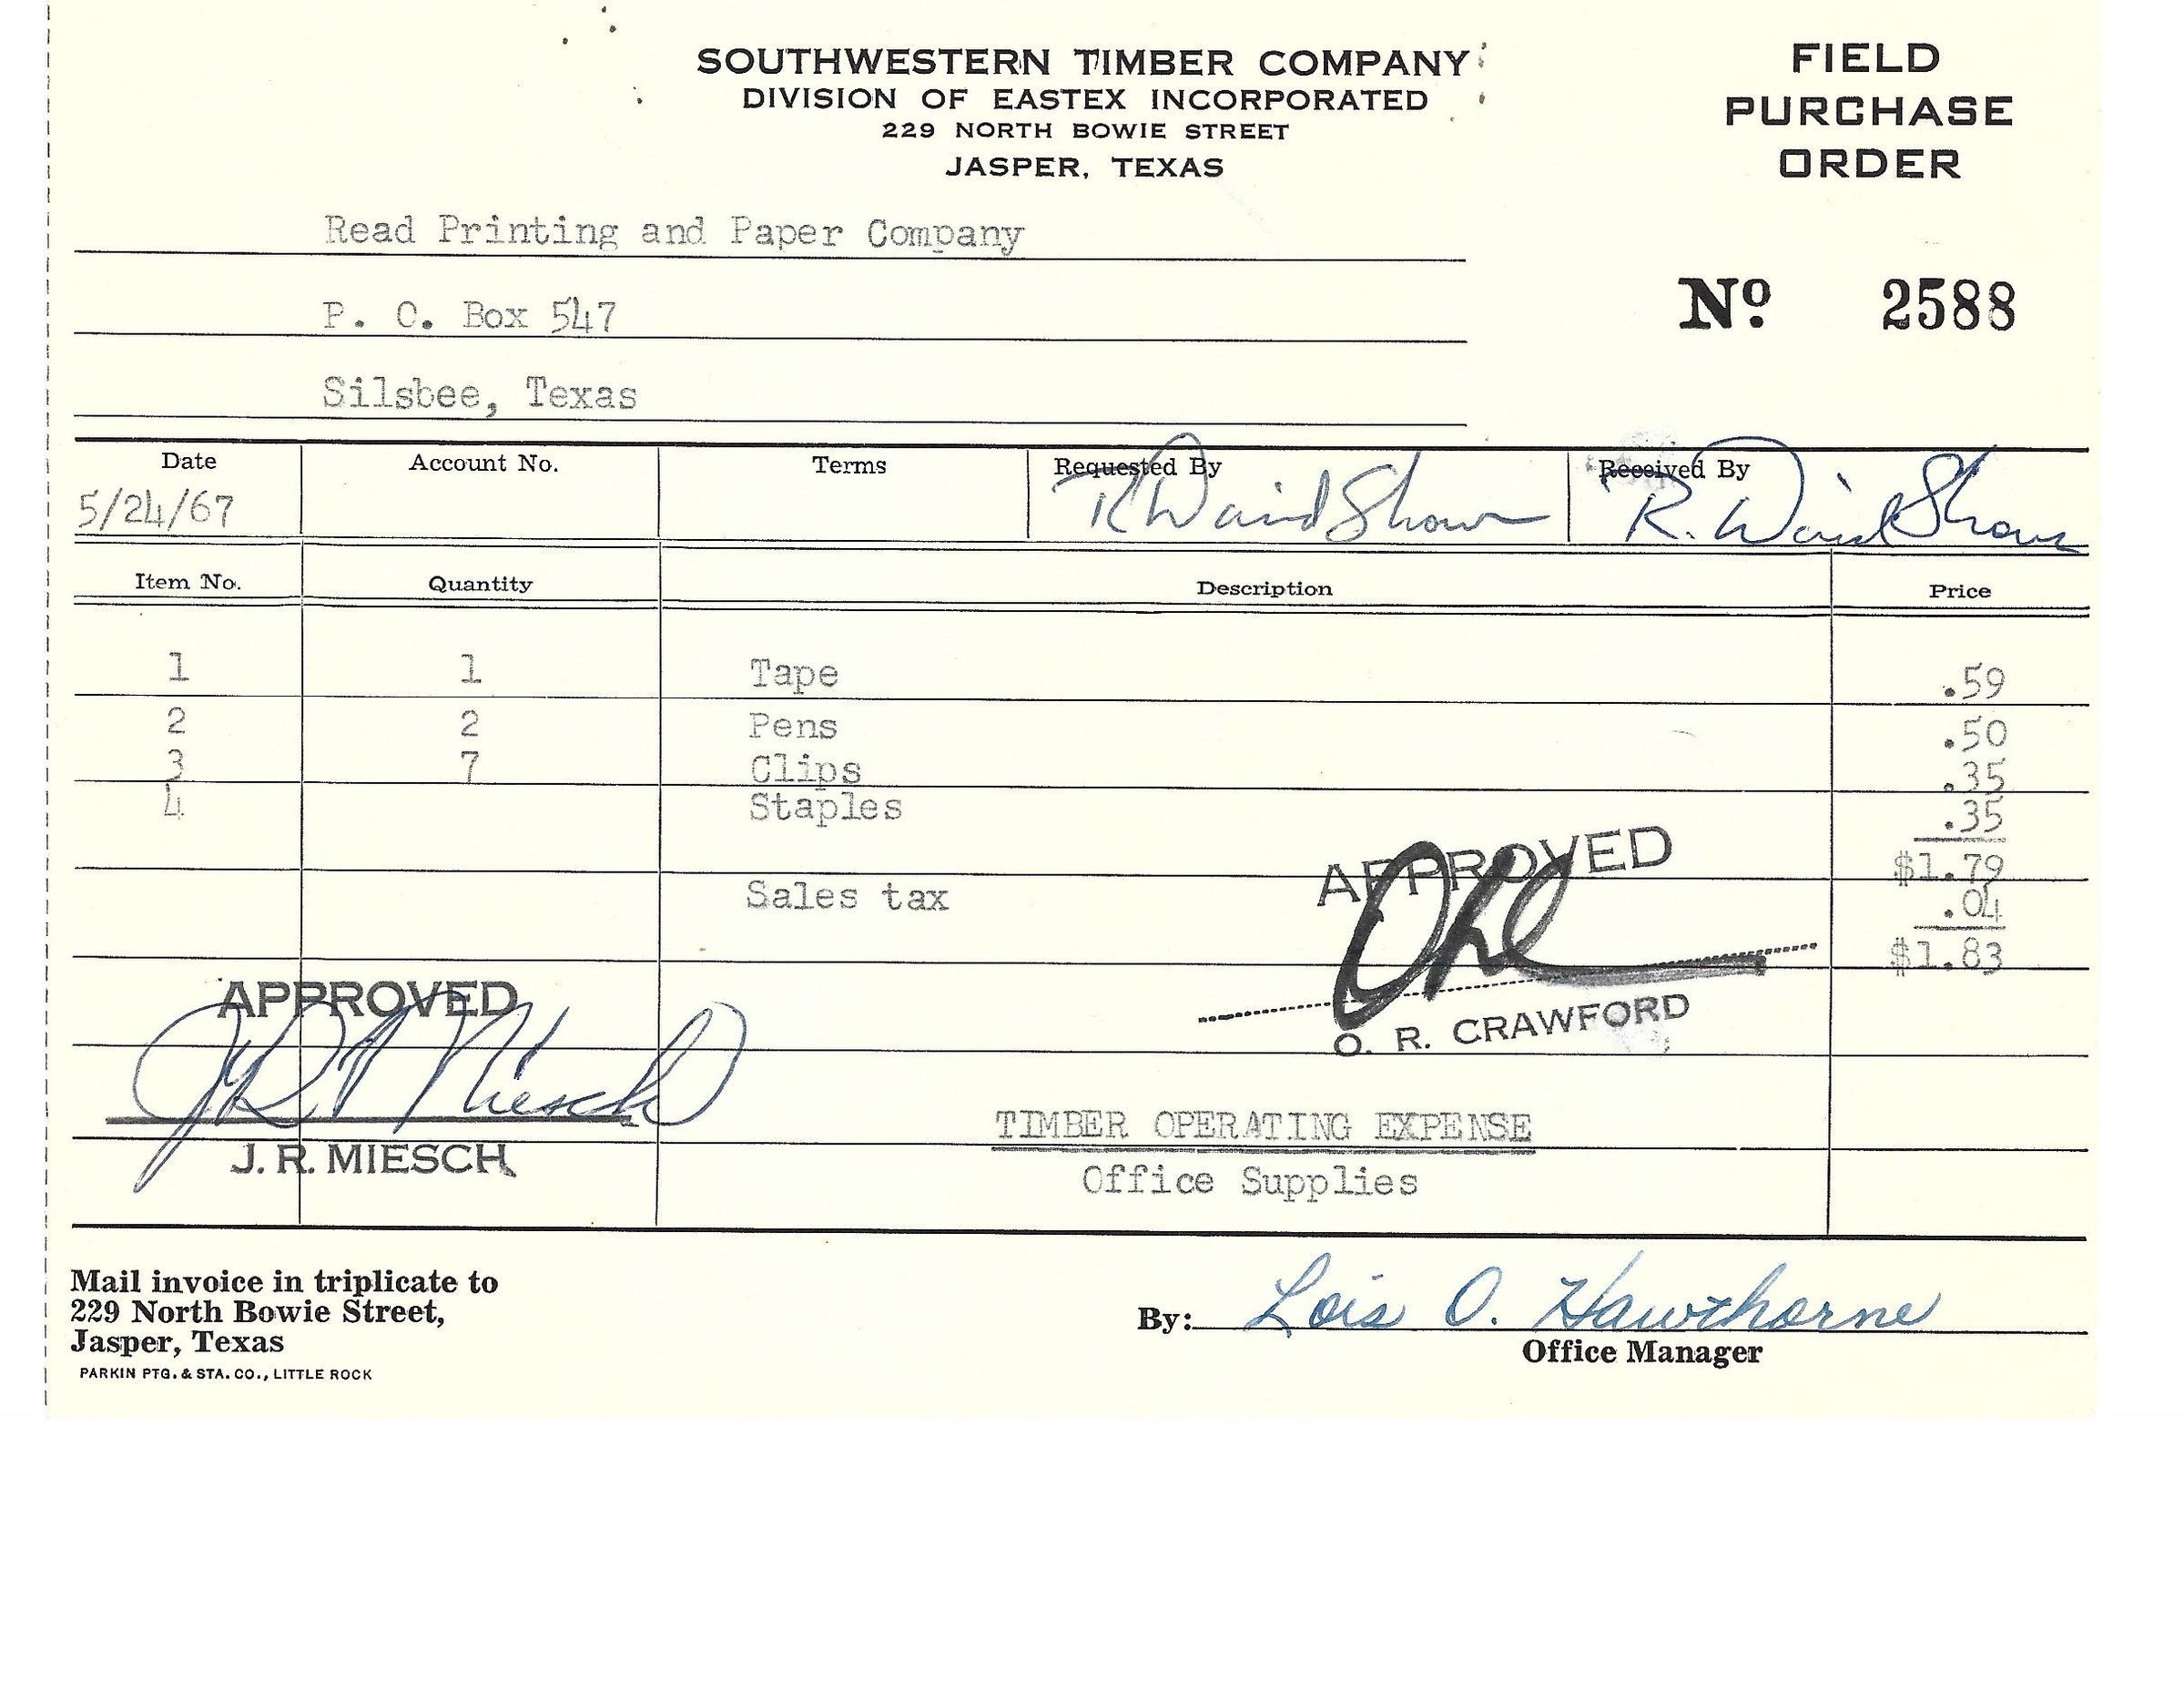 SOUTHWESTERN TIMBER COMPANY
DIVISION OF EASTEX INCORPORATED
229 NORTH BOWIE STREET
JASPER, TEXAS
FIELD
PURCHASE
ORDER
Read Printing and Paper Company
P. O. Box 547
Silsbee, Texas
Nº 2588
Date Account No. Terms Requested By Received By
5/24/67 R. Waind Shows R. Waind Shows
Item No. Quantity Description Price
1 1 Tape .59
2 2 Pens .50
3 7 Clips .35
4 Staples .35
$1.79
Sales tax .04
$1.83
APPROVED
O. R. CRAWFORD
APPROVED
J R Miesch
J. R. MIESCH
TIMBER OPERATING EXPENSE
Office Supplies
Mail invoice in triplicate to
229 North Bowie Street,
Jasper, Texas
PARKIN PTG. & STA. CO., LITTLE ROCK
By: Lois O. Hawthorne
Office Manager